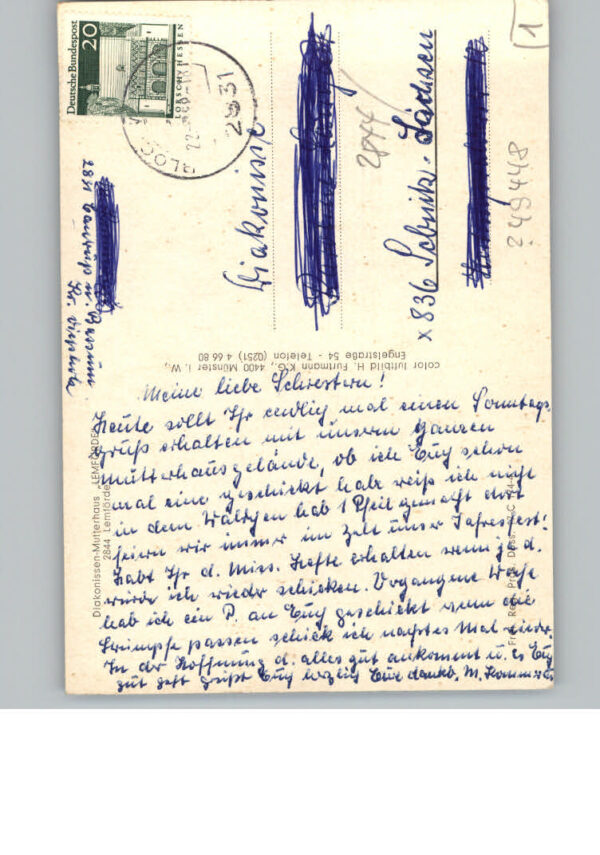 Deutsche Bundespost
20
LORSCH / HESSEN
2831
1
Diakonisse
2844
x 836 Sebnitz. Sachsen
249448
color luftbild H. Furtmann KG., 4400 Münster i. W.,
Engelstraße 54 - Telefon (0251) 4 66 80
Diakonissen-Mutterhaus „LEMFÖRDE"
2844 Lemförde
Meine liebe Schwestern!
Heute sollt Ihr endlich mal einen Sonntags-
gruß erhalten mit unserm ganzen
Mutterhausgelände, ob ich Euch schon
mal eine geschickt habe weiß ich nicht
in dem Wäldchen hab 1 Pfeil gemacht dort
feiern wir immer im Zelt unser Jahresfest!
habt Ihr d. Miss. Hefte erhalten wenn ja d.
würde ich wieder schicken. Vergangene Woche
hab ich ein P. an Euch geschickt wenn die
Strümpfe passen schick ich nächstes Mal wieder.
In der Hoffnung d. alles gut ankommt u. es Euch
gut geht grüßt Euch herzlich Eure dankb. M.